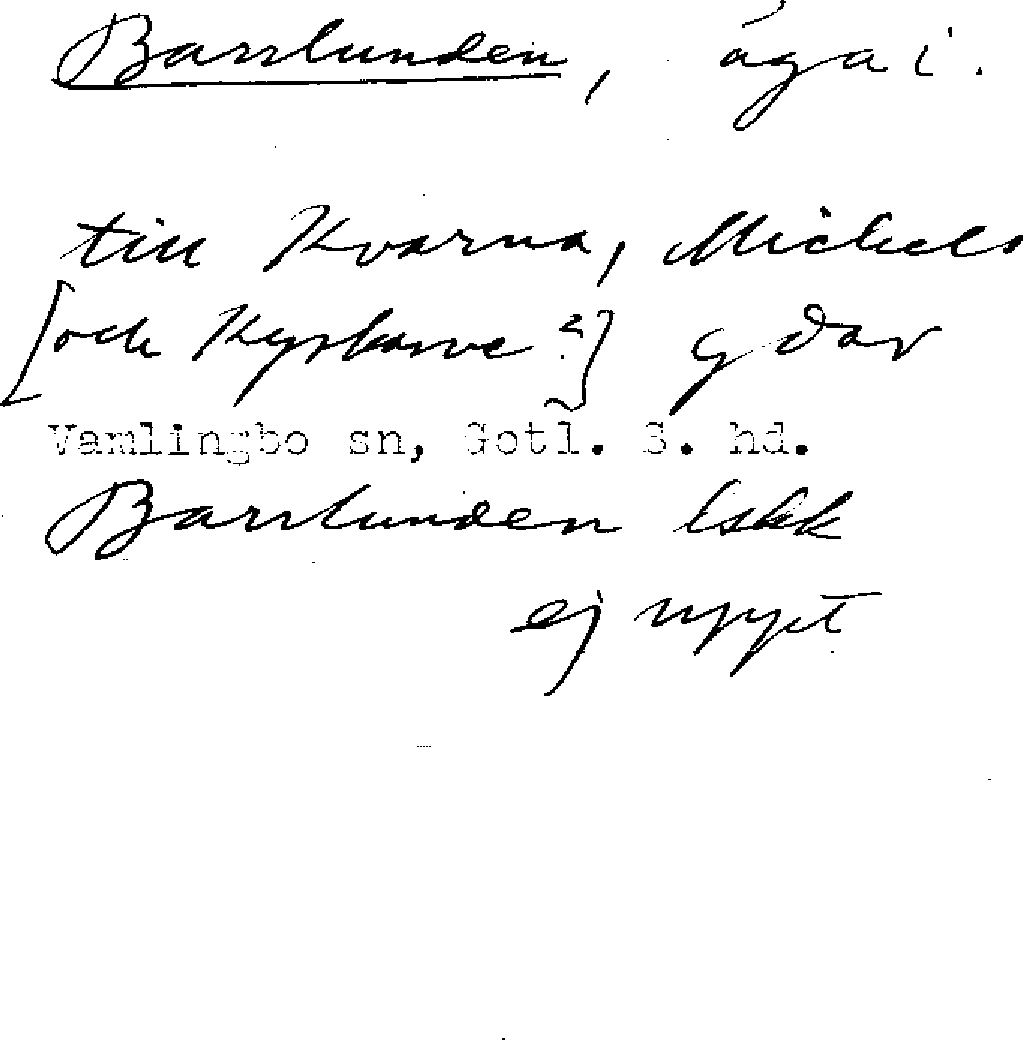 Barrlunden, äga i.
till Kvarna, Mickels
[och Kyrkarve?] gdar
Vamlingbo sn, Gotl. S. hd.
Barrlunden lskk
ej uppt